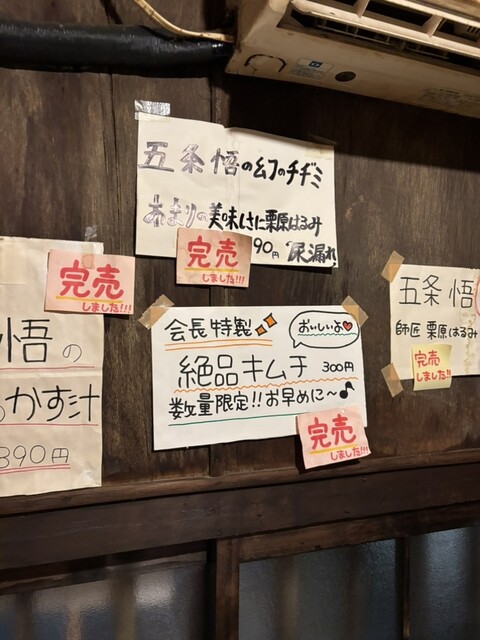 五条悟の幻のチヂミ
あまりの美味しさに栗原はるみ
90円 尿漏れ
完売
しました!!!
完売
しました!!!
悟の
かす汁
390円
会長特製
おいしいよ
絶品キムチ 300円
数量限定!!お早めに～♪
完売
しました!!!
五条 悟
師匠 栗原はるみ
完売
しました!!!